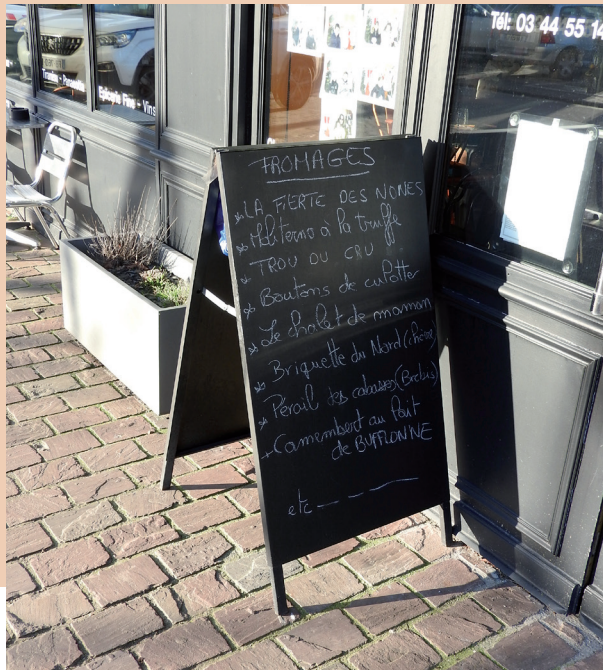 Tél: 03 44 55 14
Epicerie Fine - Vins
FROMAGES
* LA FIERTE DES NONES
* Moliterno à la truffe
* TROU DU CRU
* Boutons de culotter
* Le chalet de maman
* Briquette du Nord (chèvre)
* Pérail des cabasses (Brebis)
+ Camembert au lait
de BUFFLONNE
etc - - -